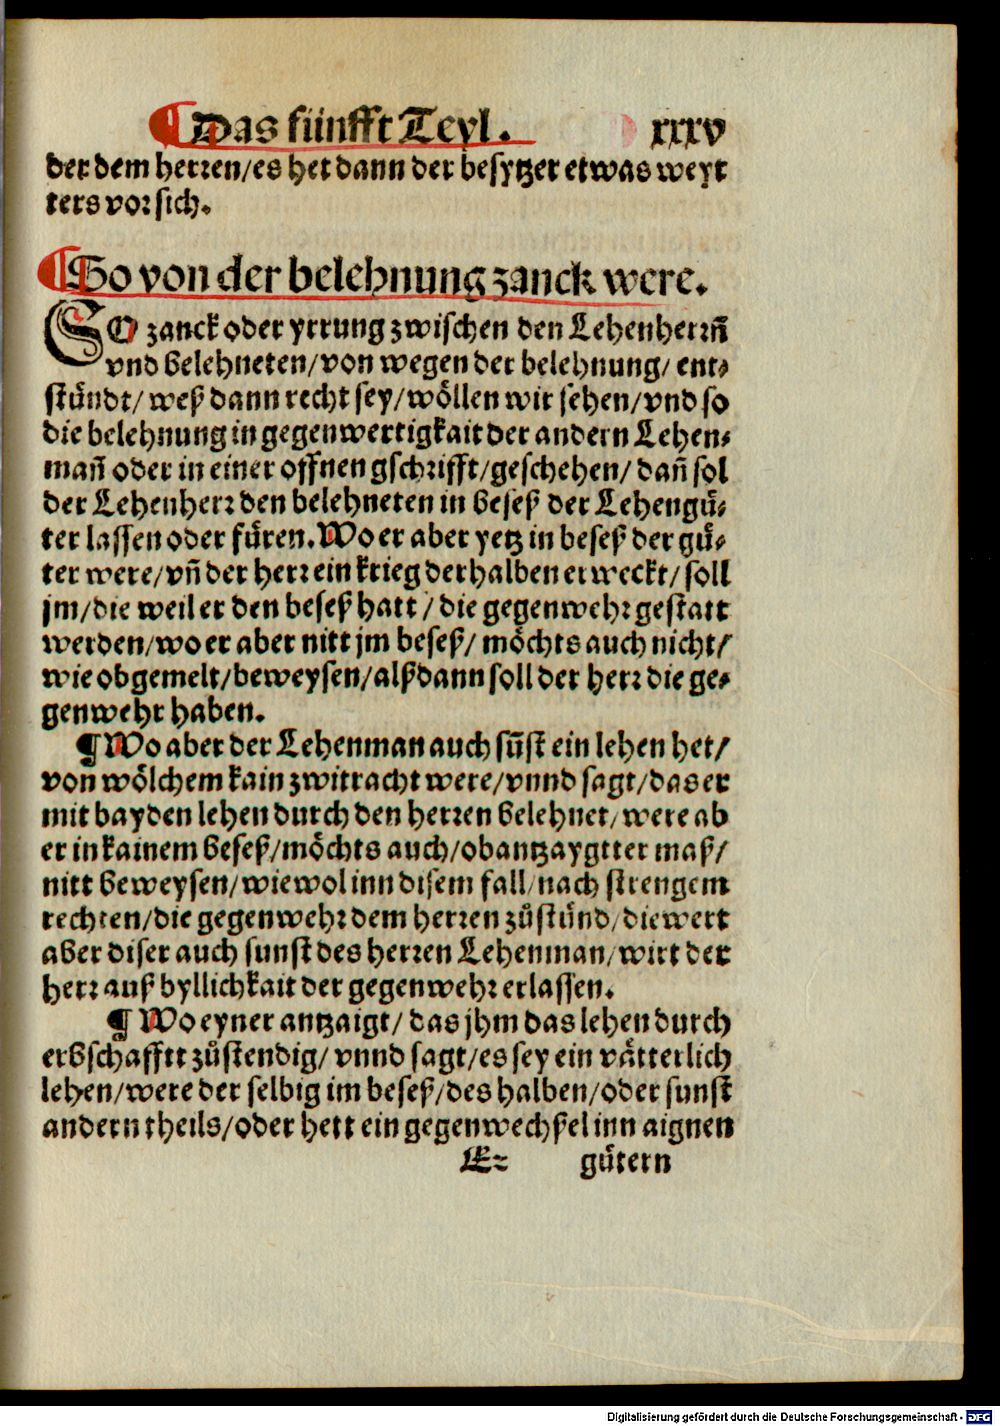 ¶Das fünfft Teyl. xxxv
der dem herꝛen/es het dann der besytzer etwas weyt
ters voꝛ sich.
¶So von der belehnung zanck were.
SO zanck oder yrrung zwischen den Lehenherꝛn̄
vnd belehneten/von wegen der belehnung/ ent⸗
stündt/ weß dann recht sey/wöllen wir sehen/vnd so
die belehnung in gegenwertigkait der andern Lehen⸗
man̄ oder in einer offnen gschꝛifft/geschehen/ dan̄ sol
der Lehenherꝛ den belehneten in beseß der Lehenguͤ⸗
ter lassen oder fuͤren. Wo er aber yetz in beseß der guͤ⸗
ter were/vn̄ der herꝛ ein krieg derhalben erweckt/ soll
jm/die weil er den beseß hatt/die gegenwehꝛ gestatt
werden/wo er aber nitt jm beseß/ möchts auch nicht/
wie obgemelt/beweysen/alßdann soll der herꝛ die ge⸗
genwehr haben.
¶Wo aber der Lehenman auch sun̄st ein lehen het/
von wölchem kain zwitracht were/vnnd sagt/das er
mit bayden lehen durch den herꝛen belehnet/were ab
er in kainem beseß/möchts auch/ob antzaygtter maß/
nitt beweysen/wiewol inn disem fall/nach strengem
rechten/die gegenwehꝛ dem herꝛen zuͤstünd/diewert
aber diser auch sunst des herꝛen Lehenman/wirt der
herꝛ auß byllichkait der gegenwehꝛ erlassen.
¶ Wo eyner antzaigt/ das jhm das lehen durch
erbschafftt zuͤstendig/ vnnd sagt/es sey ein vätterlich
lehen/were der selbig im beseß/des halben/oder sunst
andern theils/oder hett ein gegenwechßel inn aignen
E⸗ guͤtern
Digitalisierung gefördert durch die Deutsche Forschungsgemeinschaft - DFG